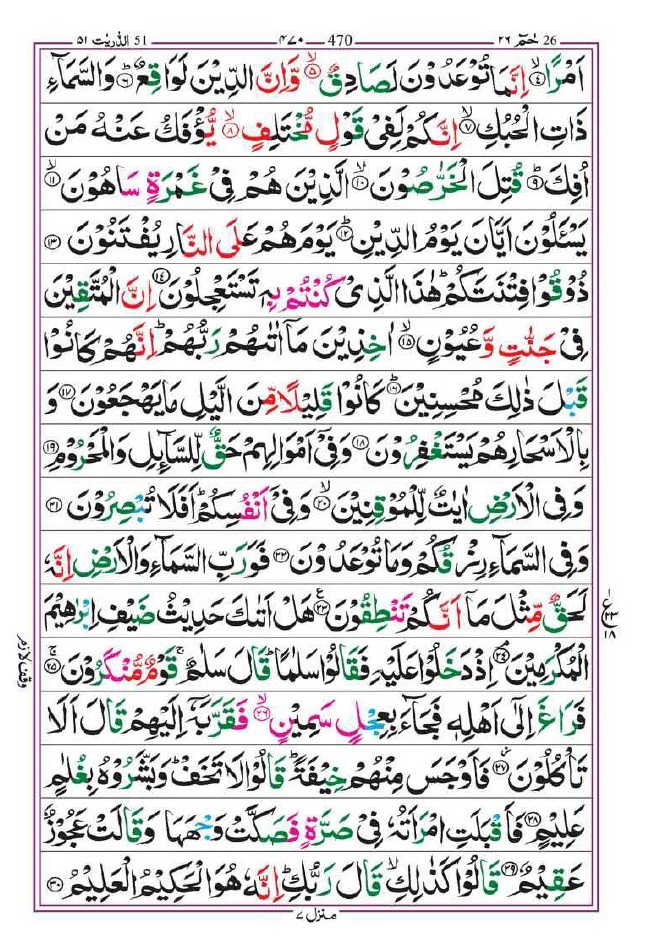 الذّٰریٰت ٥١ 51 470 ٤٧٠ حٰمٓ ٢٦ 26
اَمْرًا ۙ﴿۴﴾ اِنَّمَا تُوْعَدُوْنَ لَصَادِقٌ ۙ﴿۵﴾ وَّاِنَّ الدِّيْنَ لَوَاقِعٌ ؕ﴿۶﴾ وَالسَّمَآءِ
ذَاتِ الْحُبُكِ ۙ﴿۷﴾ اِنَّكُمْ لَفِيْ قَوْلٍ مُّخْتَلِفٍ ۙ﴿۸﴾ يُّؤْفَكُ عَنْهُ مَنْ
اُفِكَ ؕ﴿۹﴾ قُتِلَ الْخَرّٰصُوْنَ ۙ﴿۱۰﴾ الَّذِيْنَ هُمْ فِيْ غَمْرَةٍ سَاهُوْنَ ۙ﴿۱۱﴾
يَسْـَٔلُوْنَ اَيَّانَ يَوْمُ الدِّيْنِ ؕ﴿۱۲﴾ يَوْمَ هُمْ عَلَي النَّارِ يُفْتَنُوْنَ ﴿۱۳﴾
ذُوْقُوْا فِتْنَتَكُمْ ؕ هٰذَا الَّذِيْ كُنْتُمْ بِهٖ تَسْتَعْجِلُوْنَ ﴿۱۴﴾ اِنَّ الْمُتَّقِيْنَ
فِيْ جَنّٰتٍ وَّعُيُوْنٍ ۙ﴿۱۵﴾ اٰخِذِيْنَ مَاۤ اٰتٰىهُمْ رَبُّهُمْ ؕ اِنَّهُمْ كَانُوْا
قَبْلَ ذٰلِكَ مُحْسِنِيْنَ ؕ﴿۱۶﴾ كَانُوْا قَلِيْلًا مِّنَ الَّيْلِ مَا يَهْجَعُوْنَ ﴿۱۷﴾ وَ
بِالْاَسْحَارِ هُمْ يَسْتَغْفِرُوْنَ ﴿۱۸﴾ وَفِيْۤ اَمْوَالِهِمْ حَقٌّ لِّلسَّآىِٕلِ وَالْمَحْرُوْمِ ﴿۱۹﴾
وَفِي الْاَرْضِ اٰيٰتٌ لِّلْمُوْقِنِيْنَ ۙ﴿۲۰﴾ وَفِيْۤ اَنْفُسِكُمْ ؕ اَفَلَا تُبْصِرُوْنَ ﴿۲۱﴾
وَفِي السَّمَآءِ رِزْقُكُمْ وَمَا تُوْعَدُوْنَ ﴿۲۲﴾ فَوَرَبِّ السَّمَآءِ وَالْاَرْضِ اِنَّهٗ
لَحَقٌّ مِّثْلَ مَاۤ اَنَّكُمْ تَنْطِقُوْنَ ۧ﴿۲۳﴾ هَلْ اَتٰىكَ حَدِيْثُ ضَيْفِ اِبْرٰهِيْمَ
الْمُكْرَمِيْنَ ۘ﴿۲۴﴾ اِذْ دَخَلُوْا عَلَيْهِ فَقَالُوْا سَلٰمًا ؕ قَالَ سَلٰمٌ ۚ قَوْمٌ مُّنْكَرُوْنَ ۚ﴿۲۵﴾
فَرَاغَ اِلٰۤى اَهْلِهٖ فَجَآءَ بِعِجْلٍ سَمِيْنٍ ۙ﴿۲۶﴾ فَقَرَّبَهٗۤ اِلَيْهِمْ قَالَ اَلَا
تَاْكُلُوْنَ ؗ﴿۲۷﴾ فَاَوْجَسَ مِنْهُمْ خِيْفَةً ؕ قَالُوْا لَا تَخَفْ ؕ وَبَشَّرُوْهُ بِغُلٰمٍ
عَلِيْمٍ ﴿۲۸﴾ فَاَقْبَلَتِ امْرَاَتُهٗ فِيْ صَرَّةٍ فَصَكَّتْ وَجْهَهَا وَقَالَتْ عَجُوْزٌ
عَقِيْمٌ ﴿۲۹﴾ قَالُوْا كَذٰلِكِ ۙ قَالَ رَبُّكِ ؕ اِنَّهٗ هُوَ الْحَكِيْمُ الْعَلِيْمُ ﴿۳۰﴾
منزل ٧
وقف لازم